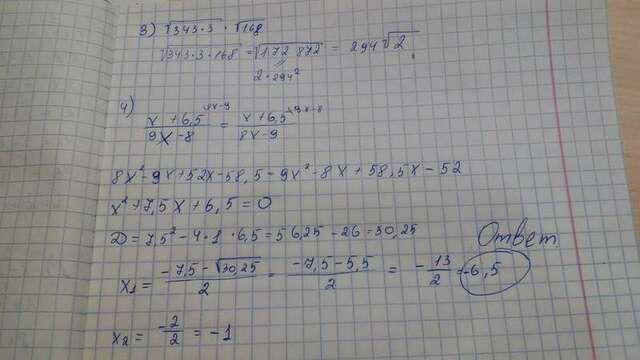 3) √343·3 · √168
√343·3·168 = √172 872 = 294√2
2·294²
4)
x+6,5 / 9x-8 = x+6,5 / 8x-9
8x²-9x+52x-58,5-9x²-8x+58,5x-52
x²+7,5x+6,5=0
D=7,5²-4·1·6,5=56,25-26=30,25
Ответ
x₁ = -7,5-√30,25 / 2 = -7,5-5,5 / 2 = -13/2 = -6,5
x₂ = -2/2 = -1